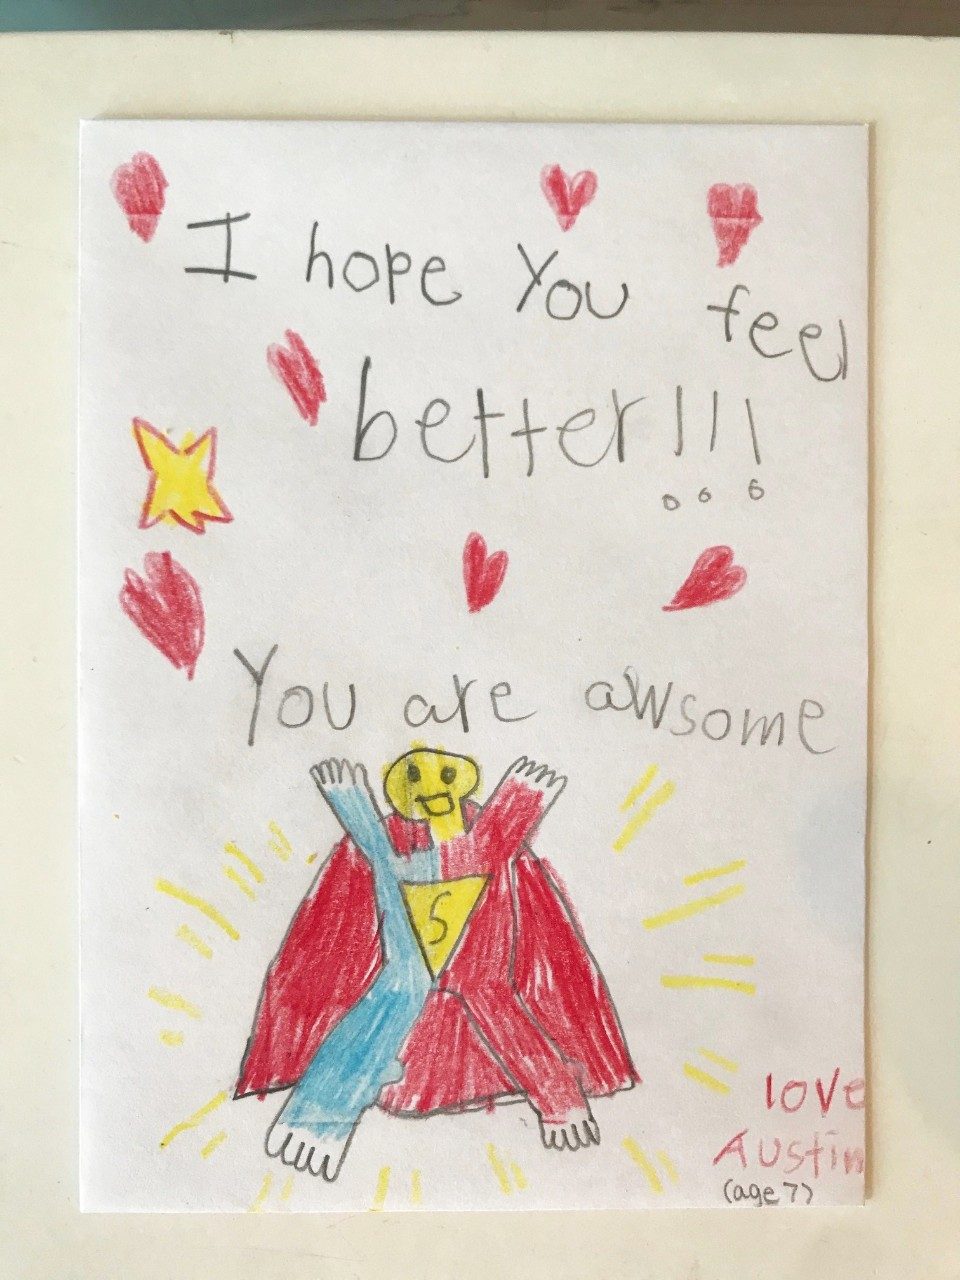 I hope You feel
better!!!
You are awsome
S
love
Austin
(age 7)